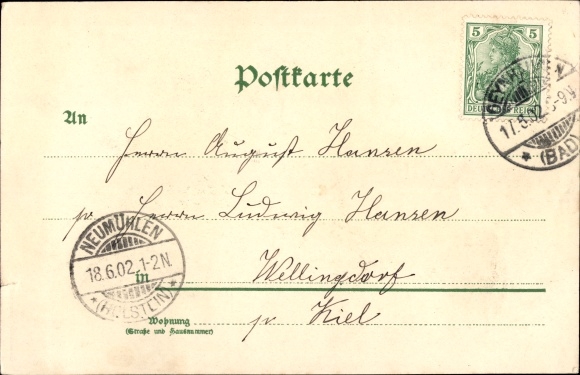 5
DEUTSCHES REICH
OEYNHAUSEN
17.6.02. 8-9N.
* (BAD)
Postkarte
An
Herrn August Hansen
pr Herrn Ludwig Hansen
NEUMÜHLEN
18.6.02. 1-2N.
* (HOLSTEIN) *
in Wellingdorf
Wohnung pr Kiel
(Straße und Hausnummer)